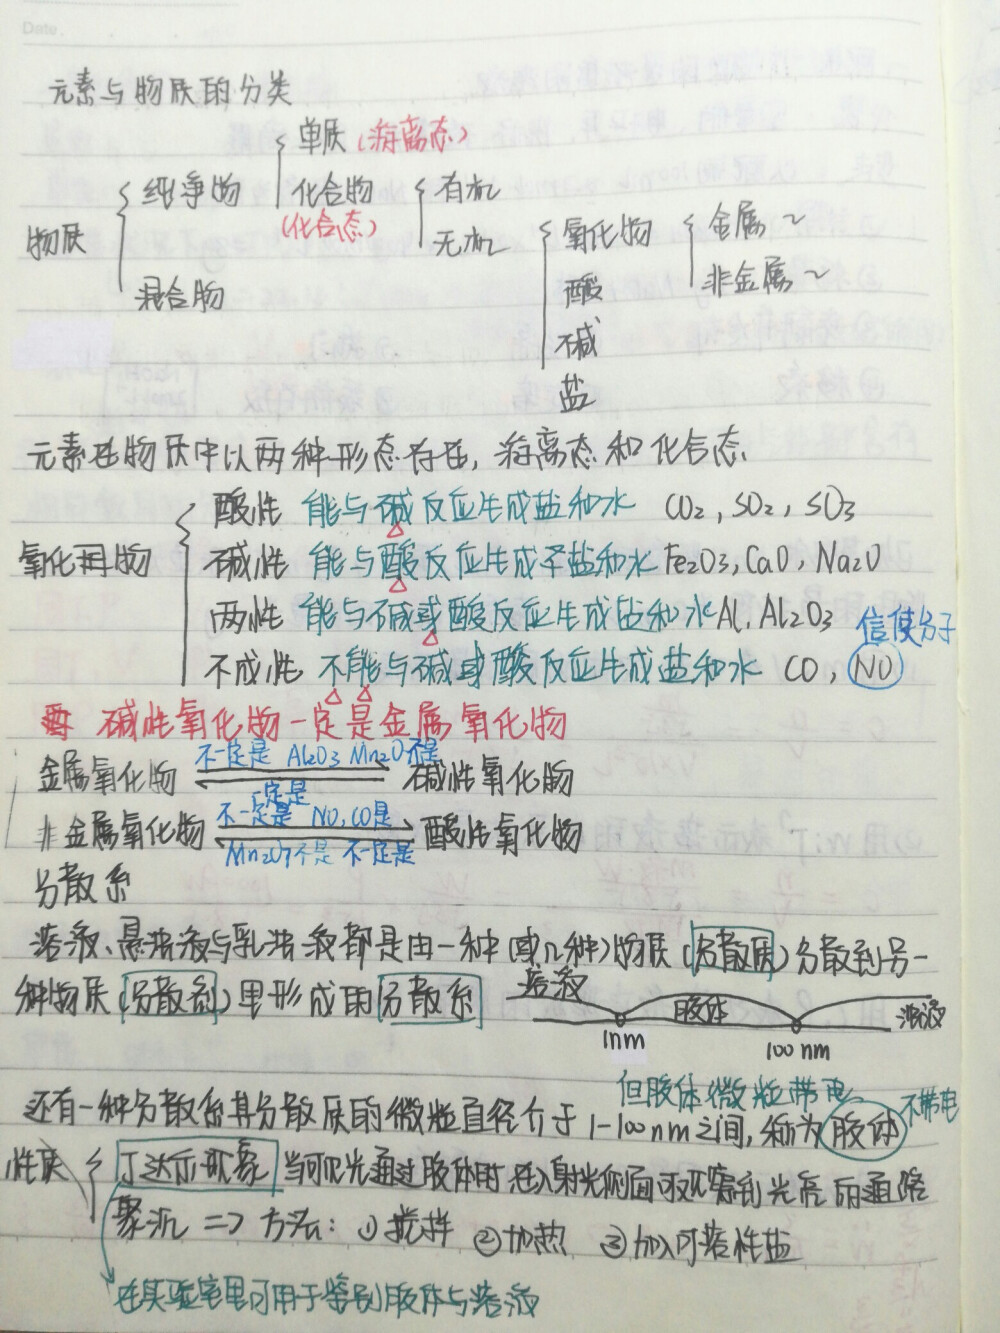 Date.
元素与物质的分类
物质
纯净物
混合物
单质(游离态)
化合物
(化合态)
有机
无机
氧化物
酸
碱
盐
金属~
非金属~
元素在物质中以两种形态存在,游离态和化合态
氧化物
酸性 能与碱反应生成盐和水 CO2,SO2,SO3
碱性 能与酸反应生成盐和水 Fe2O3,CaO,Na2O
两性 能与碱或酸反应生成盐和水 Al,Al2O3
信使分子
不成性 不能与碱或酸反应生成盐和水 CO,NO
碱性氧化物一定是金属氧化物
金属氧化物 不一定是 Al2O3 Mn2O7不是 碱性氧化物
一定是
非金属氧化物 不一定是 NO,CO是 酸性氧化物
Mn2O7不是 不一定是
分散系
溶液、悬浊液与乳浊液都是由一种(或几种)物质(分散质)分散到另一
种物质(分散剂)里形成的分散系
溶液 胶体 浊液
1nm 100nm
但胶体微粒带电
不带电
还有一种分散系其分散质的微粒直径介于1-100nm之间,称为胶体
性质
丁达尔现象 当可见光通过胶体时在入射光侧面可观察到光亮的通路
聚沉 => 方法: ①搅拌 ②加热 ③加入可溶性盐
在实验室里可用于鉴别胶体与溶液